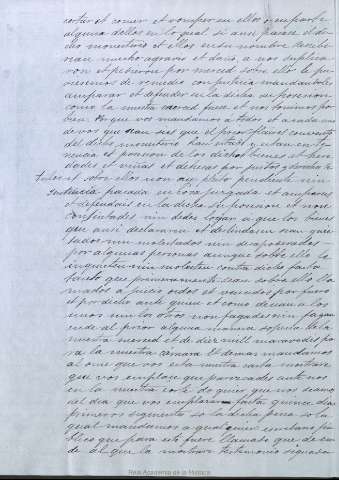 cortar et comer et romper en ellos o en parte
alguna dellos en lo qual si ansi pasase el di
cho monesterio et ellos en su nombre rescibi
rian mucho agravio et daño e nos suplica
ron et pidieron por merced sobre ello le pro
veyesemos de remedio con justicia mandandoles
amparar et defender en la dicha su posesion
como la nuestra merced fuese et nos tovimoslo por
bien porque vos mandamos a todos et a cada uno
de vos que si ansi es que el prior flaires convento
del dicho monesterio han estado y estan en te
nencia et posesion de los dichos bienes et here
dades et viñas et dehesas por justos y derechos ti
tulos et sobre ellos non ay pleito pendiente nin
sentencia pasada en cosa juzgada et ampares
et defendais en la dicha su posesion et non
consintades nin dedes logar a que los bienes
que ansi declararen et deslindaren sean qui
tados nin molestados nin desapoderados
por algunas personas aunque sobre ello le
inquieten nin molesten contra dicho fasta
tanto que primeramente sean sobre ello lla
mados a juicio oidos et vencidos por fuero
et por dicho ante quien et como devan a los
unos nin los otros non fagades nin fagan
ende al por alguna manera so pena de la
nuestra merced et de diez mill maravedis pa
ra la nuestra camara et demas mandamos
al ome que vos esta nuestra carta mostrare
que vos emplaze que parezcades ante nos
en la nuestra corte do quier que nos seamos
del dia que vos emplazare fasta quince dias
primeros siguientes so la dicha pena so la
qual mandamos a qualquier escribano pu
blico que para esto fuere llamado que de en
de al que la mostrare testimonio signado
Real Academia de la Historia